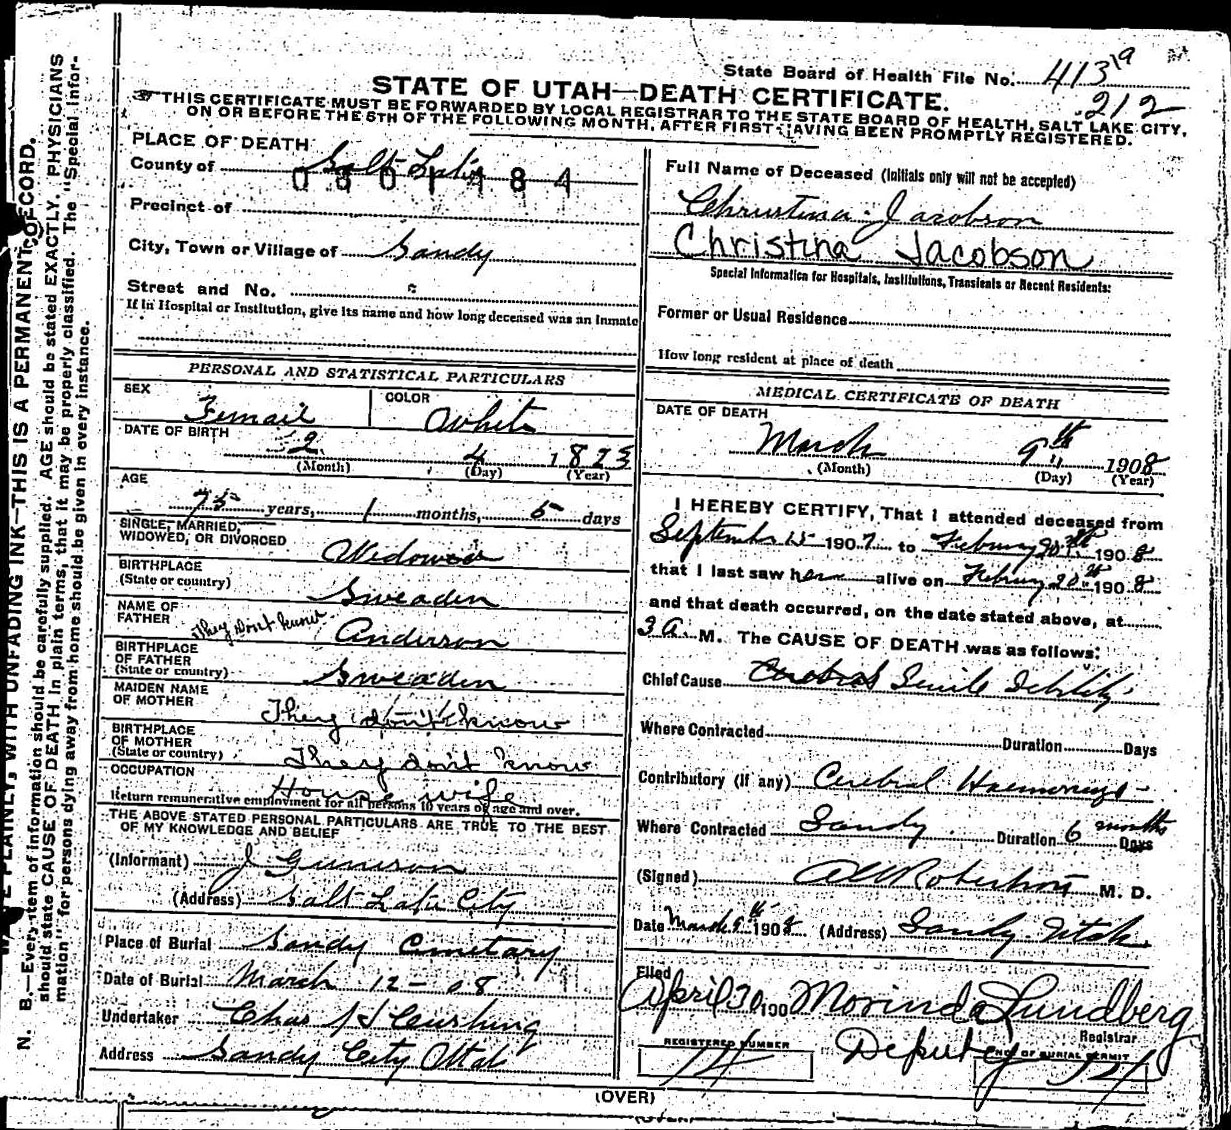 State Board of Health File No. 413 19
212
STATE OF UTAH—DEATH CERTIFICATE.
THIS CERTIFICATE MUST BE FORWARDED BY LOCAL REGISTRAR TO THE STATE BOARD OF HEALTH, SALT LAKE CITY,
ON OR BEFORE THE 5TH OF THE FOLLOWING MONTH, AFTER FIRST HAVING BEEN PROMPTLY REGISTERED.
N. B.—Every item of information should be carefully supplied. AGE should be stated EXACTLY. PHYSICIANS
should state CAUSE OF DEATH in plain terms, that it may be properly classified. The "Special Infor-
mation" for persons dying away from home should be given in every instance.
PLAINLY, WITH UNFADING INK—THIS IS A PERMANENT RECORD.
PLACE OF DEATH
County of Salt Lake
0601484
Precinct of
City, Town or Village of Sandy
Street and No.
If in Hospital or Institution, give its name and how long deceased was an inmate
PERSONAL AND STATISTICAL PARTICULARS
SEX Femail
COLOR White
DATE OF BIRTH 2 4 1823
(Month) (Day) (Year)
AGE
75 years, 1 months, 5 days
SINGLE, MARRIED,
WIDOWED, OR DIVORCED Widowed
BIRTHPLACE
(State or country) Sweaden
NAME OF
FATHER They Dont know Anderson
BIRTHPLACE
OF FATHER
(State or country) Sweaden
MAIDEN NAME
OF MOTHER They don't know
BIRTHPLACE
OF MOTHER
(State or country) They don't know
OCCUPATION House wife
Return remunerative employment for all persons 10 years of age and over.
THE ABOVE STATED PERSONAL PARTICULARS ARE TRUE TO THE BEST
OF MY KNOWLEDGE AND BELIEF
(Informant) J
(Address) Salt Lake City
Place of Burial Sandy Cmetary
Date of Burial March 12-08
Undertaker Chas Cushing
Address Sandy City Utah
Full Name of Deceased (Initials only will not be accepted)
Christina Jacobson
Christina Jacobson
Special Information for Hospitals, Institutions, Transients or Recent Residents:
Former or Usual Residence
How long resident at place of death
MEDICAL CERTIFICATE OF DEATH
DATE OF DEATH
March 9th 1908
(Month) (Day) (Year)
I HEREBY CERTIFY, That I attended deceased from
September 15 1907 to 1908
that I last saw her alive on 20th 1908
and that death occurred, on the date stated above, at
3 a. M. The CAUSE OF DEATH was as follows:
Chief Cause Cerebral Senile Debility
Where Contracted Duration Days
Contributory (if any) Cerebral
Where Contracted Sandy Duration 6 months Days
(Signed) Robertson M. D.
Date March 9th 1908 (Address) Sandy Utah
Filed
April 30 190 Morinda Lundberg
Registrar
Deputy
REGISTERED NUMBER
14
NO. OF BURIAL PERMIT
(OVER)
(OVER)